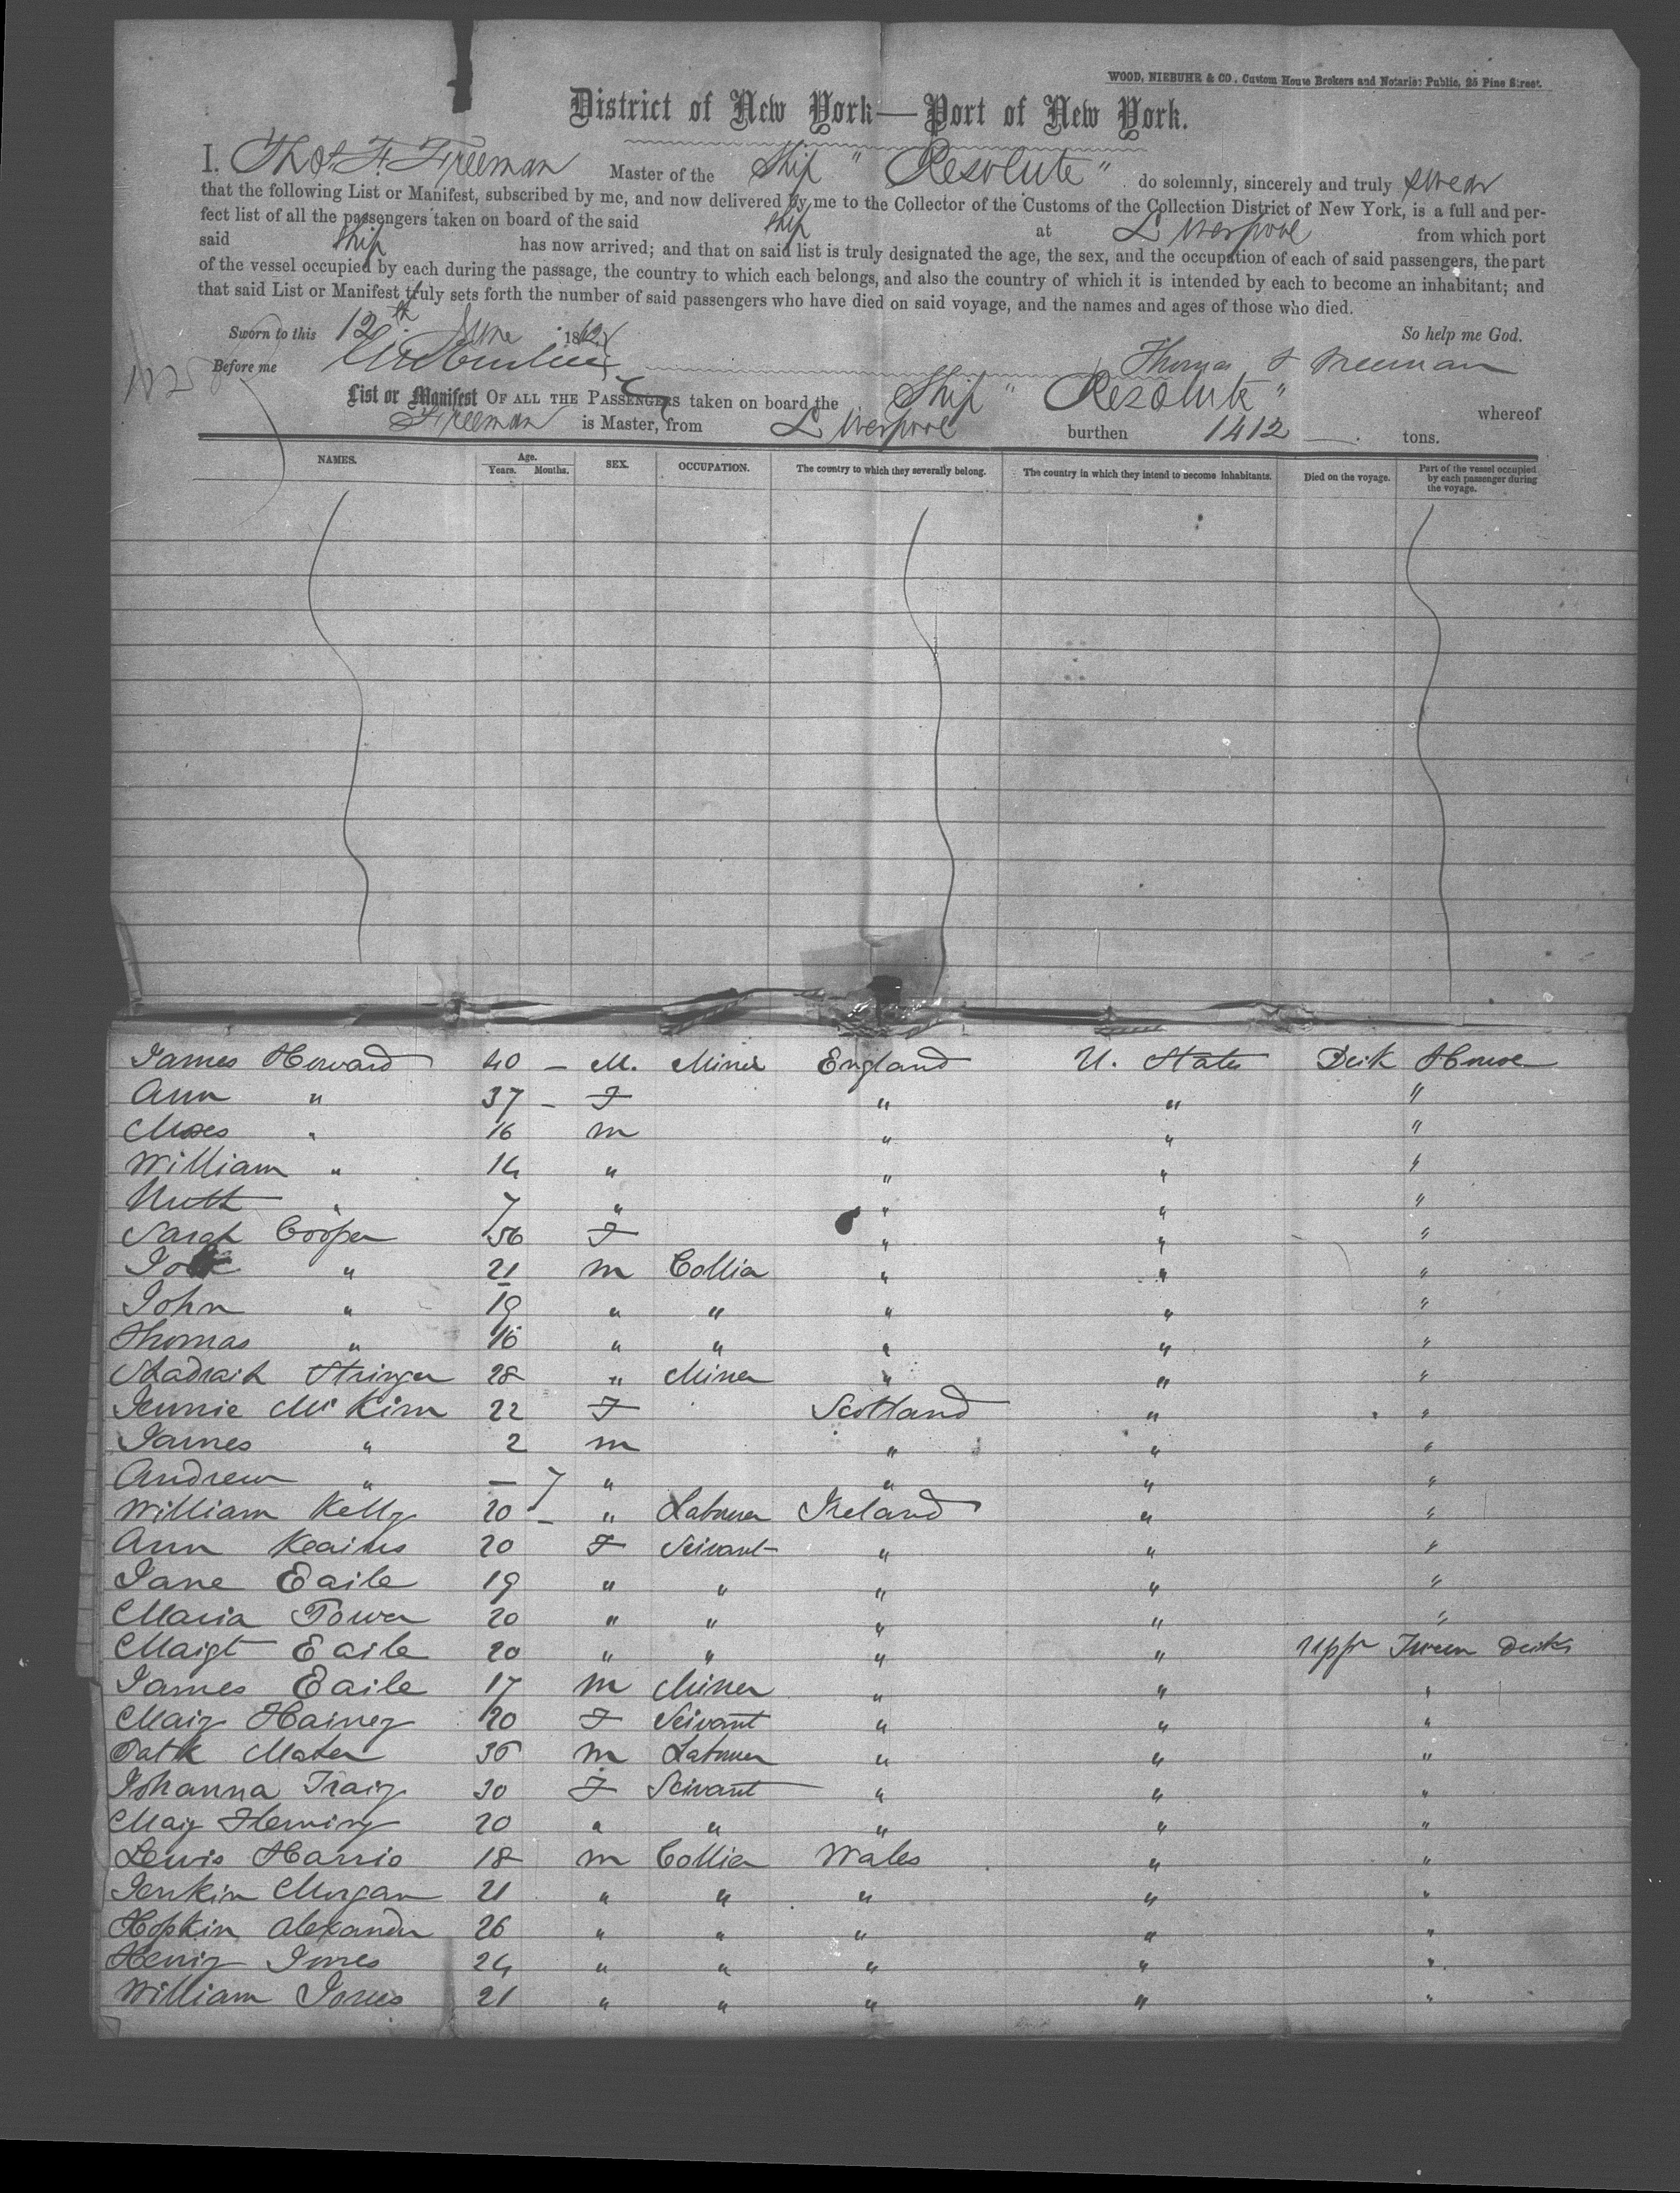 WOOD, NIEBUHR & CO. Custom House Brokers and Notaries Public, 25 Pine Street.
District of New York—Port of New York.
I, Thos. F. Freeman Master of the Ship "Resolute" do solemnly, sincerely and truly swear
that the following List or Manifest, subscribed by me, and now delivered by me to the Collector of the Customs of the Collection District of New York, is a full and per-
fect list of all the passengers taken on board of the said ship at Liverpool from which port
said ship has now arrived; and that on said list is truly designated the age, the sex, and the occupation of each of said passengers, the part
of the vessel occupied by each during the passage, the country to which each belongs, and also the country of which it is intended by each to become an inhabitant; and
that said List or Manifest truly sets forth the number of said passengers who have died on said voyage, and the names and ages of those who died.
Sworn to this 12th June 186 So help me God.
Before me Thomas F Freeman
List or Manifest OF ALL THE PASSENGERS taken on board the Ship "Resolute" whereof
Freeman is Master, from Liverpool burthen 1412 tons.
NAMES. Age. Years. Months. SEX. OCCUPATION. The country to which they severally belong. The country in which they intend to become inhabitants. Died on the voyage. Part of the vessel occupied by each passenger during the voyage.
James Howard 40 - M. Miner England U. States Deck House
Ann " 37 - F " " "
Moses " 16 m " " "
William " 14 " " " "
" 7 " " " "
Sarah Cooper 56 F " " "
" 21 m Collier " " "
John " 19 " " " " "
Thomas " 16 " " " " "
Stringer 28 " Miner " " "
Jennie McKim 22 F Scotland " "
James " 2 m " " "
Andrew " — 7 " " " "
William Kelly 20 - " Labourer Ireland " "
Ann Kearns 20 F Servant " " "
Jane Earle 19 " " " " "
Maria Power 20 " " " " "
Margt Earle 20 " " " " Uppr Tween Decks
James Earle 17 m Miner " " "
Mary Hainey 20 F Servant " " "
Patk Maher 36 m Labourer " " "
Johanna Tracy 30 F Servant " " "
Mary Fleming 20 " " " " "
Lewis Harris 18 m Collier Wales " "
Jenkin Morgan 21 " " " " "
Hopkin Alexander 26 " " " " "
Henry Jones 24 " " " " "
William Jones 21 " " " " "